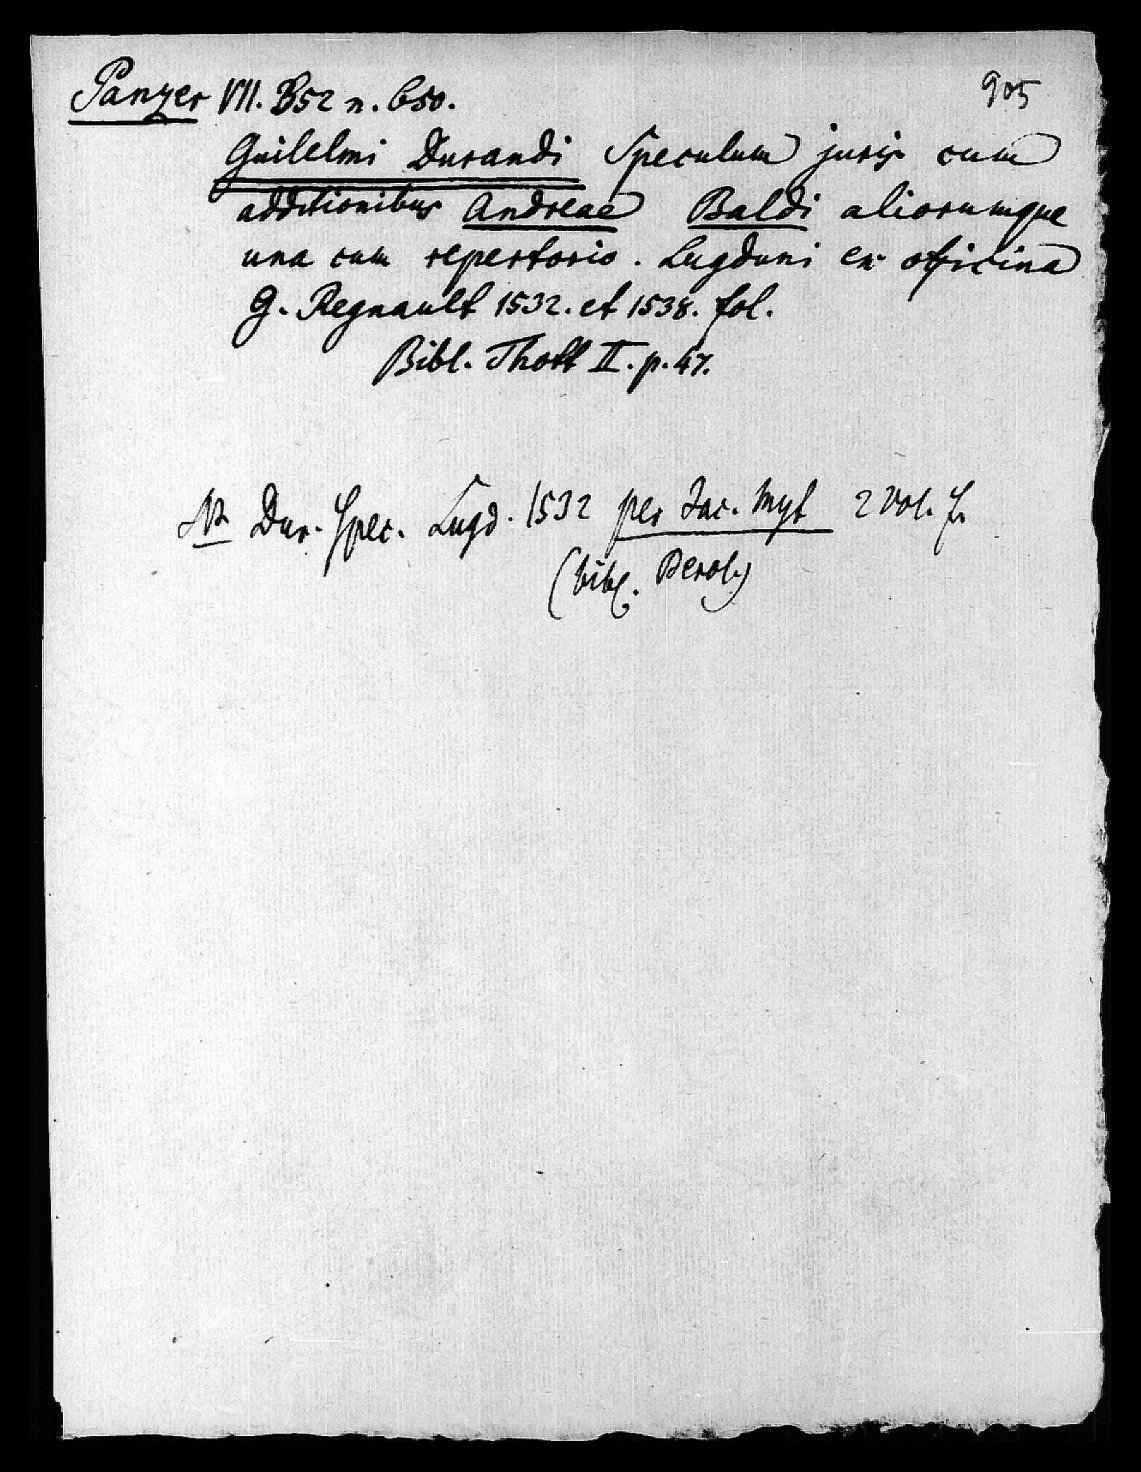 905
Panzer VII. 352 n. 650.
Guilelmi Durandi Speculum juris cum
additionibus Andreae Baldi aliorumque
una cum repertorio. Lugduni ex officina
G. Regnault 1532. et 1538. fol.
Bibl. Thott II. p. 47.
Dur. Spec. Lugd. 1532 per Jac. Myt 2 vol. f.
(bibl. Berol.)